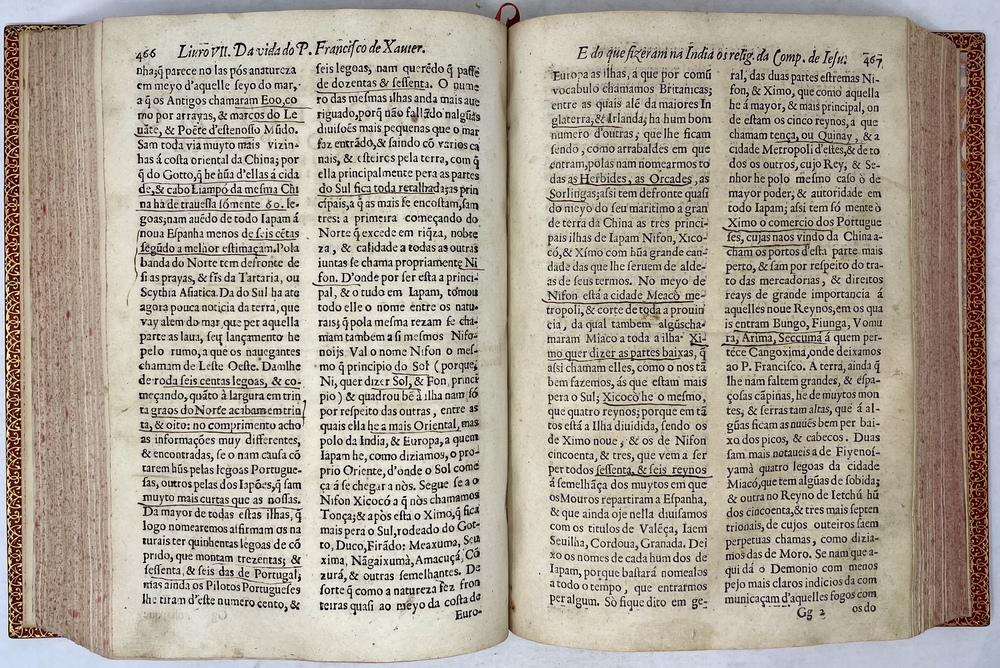 466 Liuro VII. Da vida do P. Francisco de Xauier.
nha; q̃ parece no las pós a natureza
em meyo d'aquelle seyo do mar,
a q̃ os Antigos chamaram Eoo, co
mo por arrayas, & marcos do Le
uãte, & Poẽte d'estenosso Mũdo.
Sam toda via muyto mais vizin-
has á costa oriental da China; por
q̃ do Gotto, q̃ he hũa d'ellas á cida
de, & cabo Liampó da mesma Chi
na ha de trauessa sómente 60. le-
goas; nam auẽdo de todo Iapam á
noua Espanha menos de seis cẽtas
segũdo a melhor estimaçam. Pola
banda do Norte tem desronte de
si as prayas, & fĩs da Tartaria, ou
Scythia Asiatica. Da do Sul ha ate
agora pouca noticia da terra, que
vay alem do mar, que per aquella
parte as laua, seu lançamento he
pelo rumo, a que os nauegantes
chamam de Leste Oeste. Damlhe
de roda seis centas legoas, & co-
meçando, quãto à largura em trin
ta graos do Norte acabam em trin
ta, & oito: no comprimento acho
as informações muy differentes,
& encontradas, se o nam causa cõ
tarem hũs pelas legoas Portugue-
sas, outros pelas dos Iapões, q̃ sam
muyto mais curtas que as nossas.
Da mayor de todas estas ilhas, q̃
logo nomearemos affirmam os na
turais ter quinhentas legoas de cõ
prido, que montam trezentas; &
sessenta, & seis das de Portugal;
mas ainda os Pilotos Portugueses
lhe tiram d'este numero cento, &
seis legoas, nam querẽdo q̃ passe
de dozentas & sessenta. O nume
ro das mesmas ilhas anda mais aue
riguado, porq̃ não fallãdo nalgũas
diuisões mais pequenas que o mar
faz entrãdo, & saindo cõ varios ca
nais, & esteiros pela terra, com q̃
ella principalmente pera as partes
do Sul fica toda retalhada; as prin
cipais, a q̃ as mais se encostam, sam
tres: a primeira começando do
Norte q̃ excede em riqza, nobre
za, & calidade a todas as outras
iuntas se chama propriamente Ni
fon. D'onde por ser esta a princi-
pal, & o tudo em Iapam, tómou
todo elle o nome entre os natu-
rais; q̃ pola mesma rezam se cha-
miam tambem a si mesmos Nifo-
noijs Val o nome Nifon o mes-
mo q̃ principio do Sol (porque,
Ni, quer dizer Sol, & Fon, princi
pio) & quadrou bẽ á ilha nam só
por respeito das outras, entre as
quais ella he a mais Oriental, mas
polo da India, & Europa, a quem
Iapam he, como diziamos, o pro-
prio Oriente, d'onde o Sol come
ça á se chegar a nòs. Segue se a o
Nifon Xicocó a q̃ nòs chamamos
Tonça; & após esta o Ximo, q̃ fica
mais pera o Sul, rodeado do Got-
to, Duco, Firãdo: Meaxuma, Seu
xima, Nãgaixumà, Amacuçà, Co
zurá, & outras semelhantes. De
sorte q̃ como a natureza fez fron
teiras quasi ao meyo da costa de
Euro-
E do que fizeram na India os relig. da Comp. de Iesu. 467
Europa as ilhas, a que por comũ
vocabulo chamamos Britanicas;
entre as quais alé da maiores In
glaterra, & Irlanda; ha hum bom
numero d'outras, que lhe ficam
sendo, como arrabaldes em que
entram, polas nam nomearmos to
das as Herbides, as Orcades, as
Sorlingas; assi tem defronte quasi
do meyo do seu maritimo a gran
de terra da China as tres princi-
pais ilhas de Iapam Nifon, Xico-
có, & Ximo com hũa grande can-
dade das que lhe seruem de alde-
as de seus termos. No meyo de
Nifon está a cidade Meacò me-
tropoli, & corte de toda a prouin
cia, da qual tambem algũs cha-
maram Miaco a toda a ilha. Xi-
mo quer dizer as partes baixas, q̃
assi chamam elles, como o nos tã
bem fazemos, ás que estam mais
pera o Sul; Xicocò he o mesmo,
que quatro reynos; porque em tã
tos está a Ilha diuidida, sendo os
de Ximo noue, & os de Nifon
cincoenta, & tres, que vem a ser
per todos sessenta, & seis reynos
á semelhãça dos muytos em que
os Mouros repartiram a Espanha,
& que ainda oje nella diuisamos
com os titulos de Valẽça, Iaem
Seuilha, Cordoua, Granada. Dei
xo os nomes de cada hum dos de
Iapam, porque bastará nomealos
a todo o tempo, que entrarmos
per algum. Só fique dito em ge-
ral, das duas partes estremas Ni-
fon, & Ximo, que como aquella
he á mayor, & mais principal, on
de estam os cinco reynos, a que
chamam tença, ou Quinay, & a
cidade Metropoli d'estes, & de to
dos os outros, cujo Rey, & Se-
nhor he polo mesmo caso ò de
mayor poder, & autoridade em
todo Iapam; assi tem só mente ò
Ximo o comercio dos Portugue
ses, cujas naos vindo da China a-
cham os portos d'esta parte mais
perto, & sam por respeito do tra-
to das mercadorias, & direitos
reays de grande importancia á
aquelles noue Reynos, em os qua
is entram Bungo, Fiunga, Vomu
ra, Arima, Seccumà á quem per-
tẽce Cangoxima, onde deixamos
ao P. Francisco. A terra, ainda q̃
lhe nam faltem grandes, & espa-
çosas cãpinas, he de muytos mon
tes, & serras tam altas, que á al-
gũas ficam as nuuẽs bem per bai-
xo dos picos, & cabecos. Duas
sam mais notaueis a de Fiyenos-
yamà quatro legoas da cidade
Miacó, que tem algũas de sobida;
& outra no Reyno de Ietchú hũ
dos cincoenta, & tres mais septen
trionais, de cujos outeiros saem
perpetuas chamas, como dizia-
mos das de Moro. Se nam que a-
qui dá o Demonio com menos
pejo mais claros indicios da com
municaçam d'aquelles fogos com
Gg 2
os do